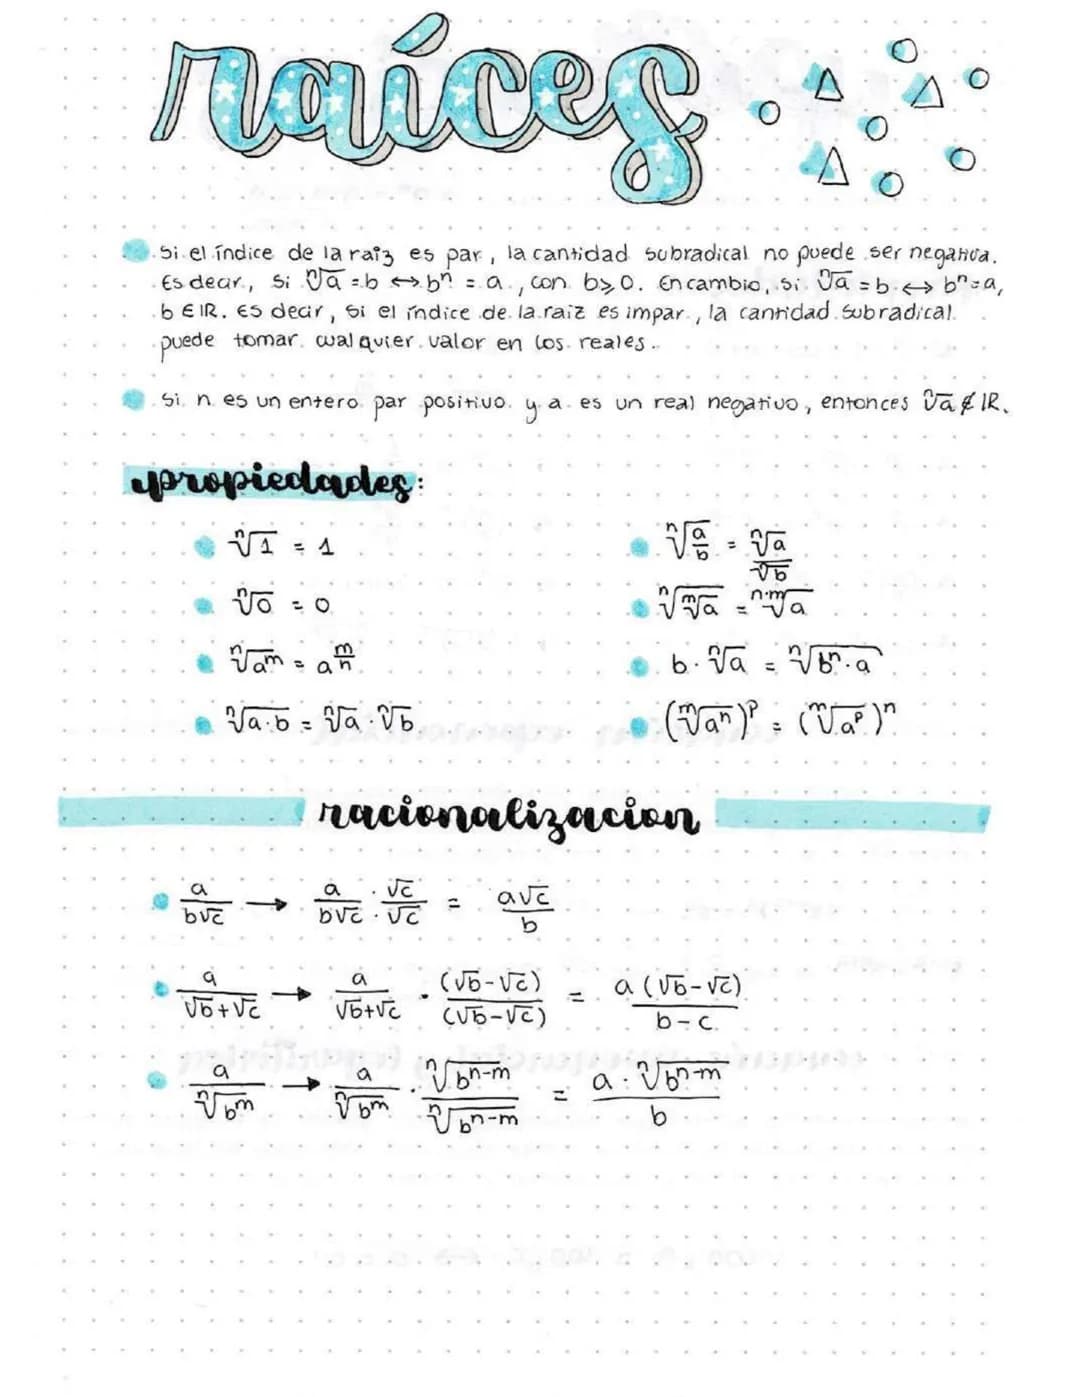 raíces
Si el índice de la raíz es par, la cantidad subradical no puede ser negativa.
Es decir, si ⁿ√a = b ↔ bⁿ = a, con b ≥ 0. En cambio, si ⁿ√a = b ↔ bⁿ = a,
b ∈ IR. Es decir, si el índice de la raiz es impar, la cantidad subradical
puede tomar cualquier valor en los reales.
Si n es un entero par positivo y a es un real negativo, entonces ⁿ√a ∉ IR.
propiedades:
ⁿ√1 = 1
ⁿ√0 = 0
ⁿ√(a^m) = a^(m/n)
ⁿ√(a·b) = ⁿ√a · ⁿ√b
ⁿ√(a/b) = ⁿ√a / ⁿ√b
ⁿ√(ᵐ√a) = ⁿ·ᵐ√a
b · ⁿ√a = ⁿ√(bⁿ · a)
(ᵐ√(aⁿ))^p = (ᵐ√(a^p))ⁿ
racionalizacion
a / (b√c) → a / (b√c) · √c / √c = a√c / b
a / (√b+√c) → a / (√b+√c) · (√b-√c) / (√b-√c) = a (√b-√c) / (b-c)
a / ⁿ√(b^m) → a / ⁿ√(b^m) · ⁿ√(b^(n-m)) / ⁿ√(b^(n-m)) = a · ⁿ√(b^(n-m)) / b